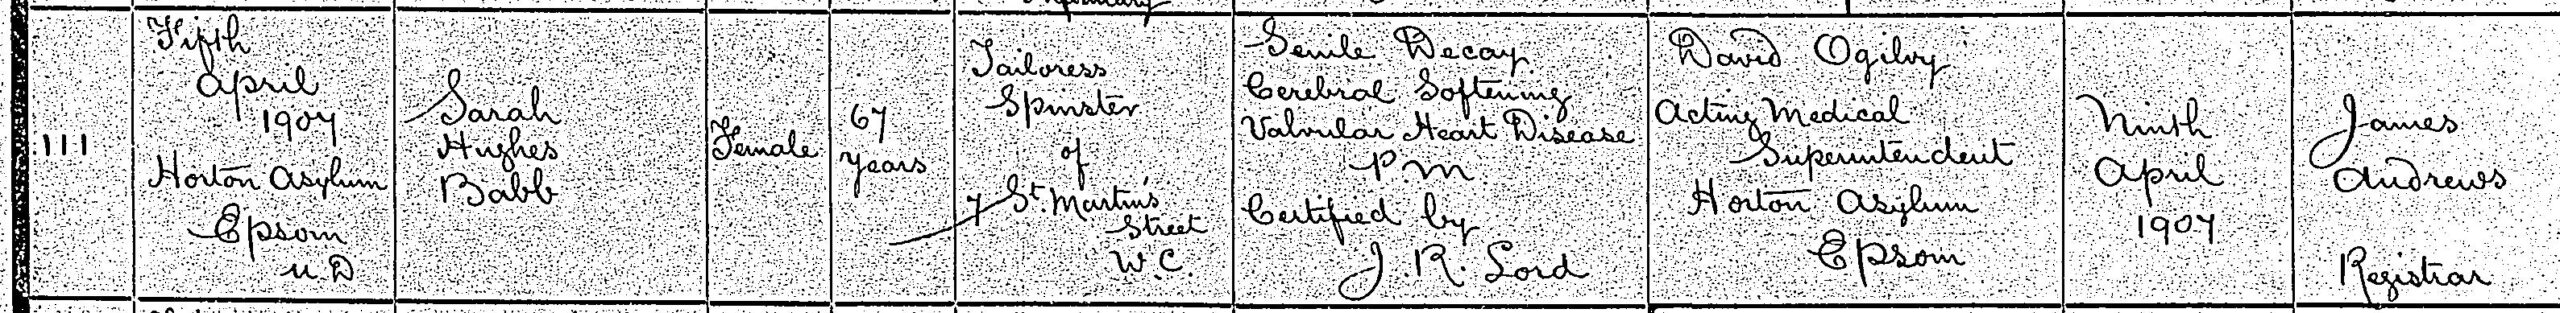 111
Fifth
April
1907
Horton Asylum
Epsom
U.D
Sarah
Hughes
Babb
Female
67
years
Tailoress
Spinster
of
7 St. Martin's
Street
W.C.
Senile Decay
Cerebral Softening
Valvular Heart Disease
P.M.
Certified by
J.R. Lord
David Ogilvy
Acting Medical
Superintendent
Horton Asylum
Epsom
Ninth
April
1907
James
Andrews
Registrar